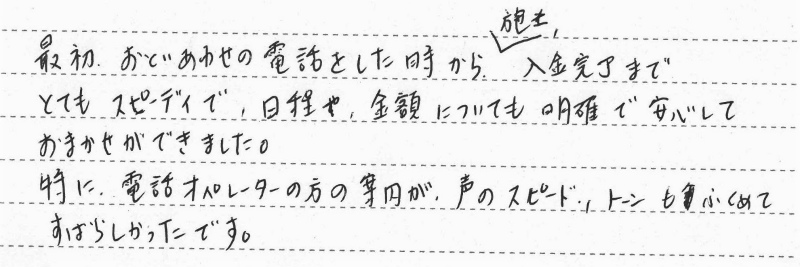 施工、
最初、おといあわせの電話をした時から、入金完了まで
とてもスピーディで、日程や、金額についても明確で安心して
おまかせができました。
特に、電話オペレーターの方の対応が、声のスピード、トーンもふくめて
すばらしかったです。